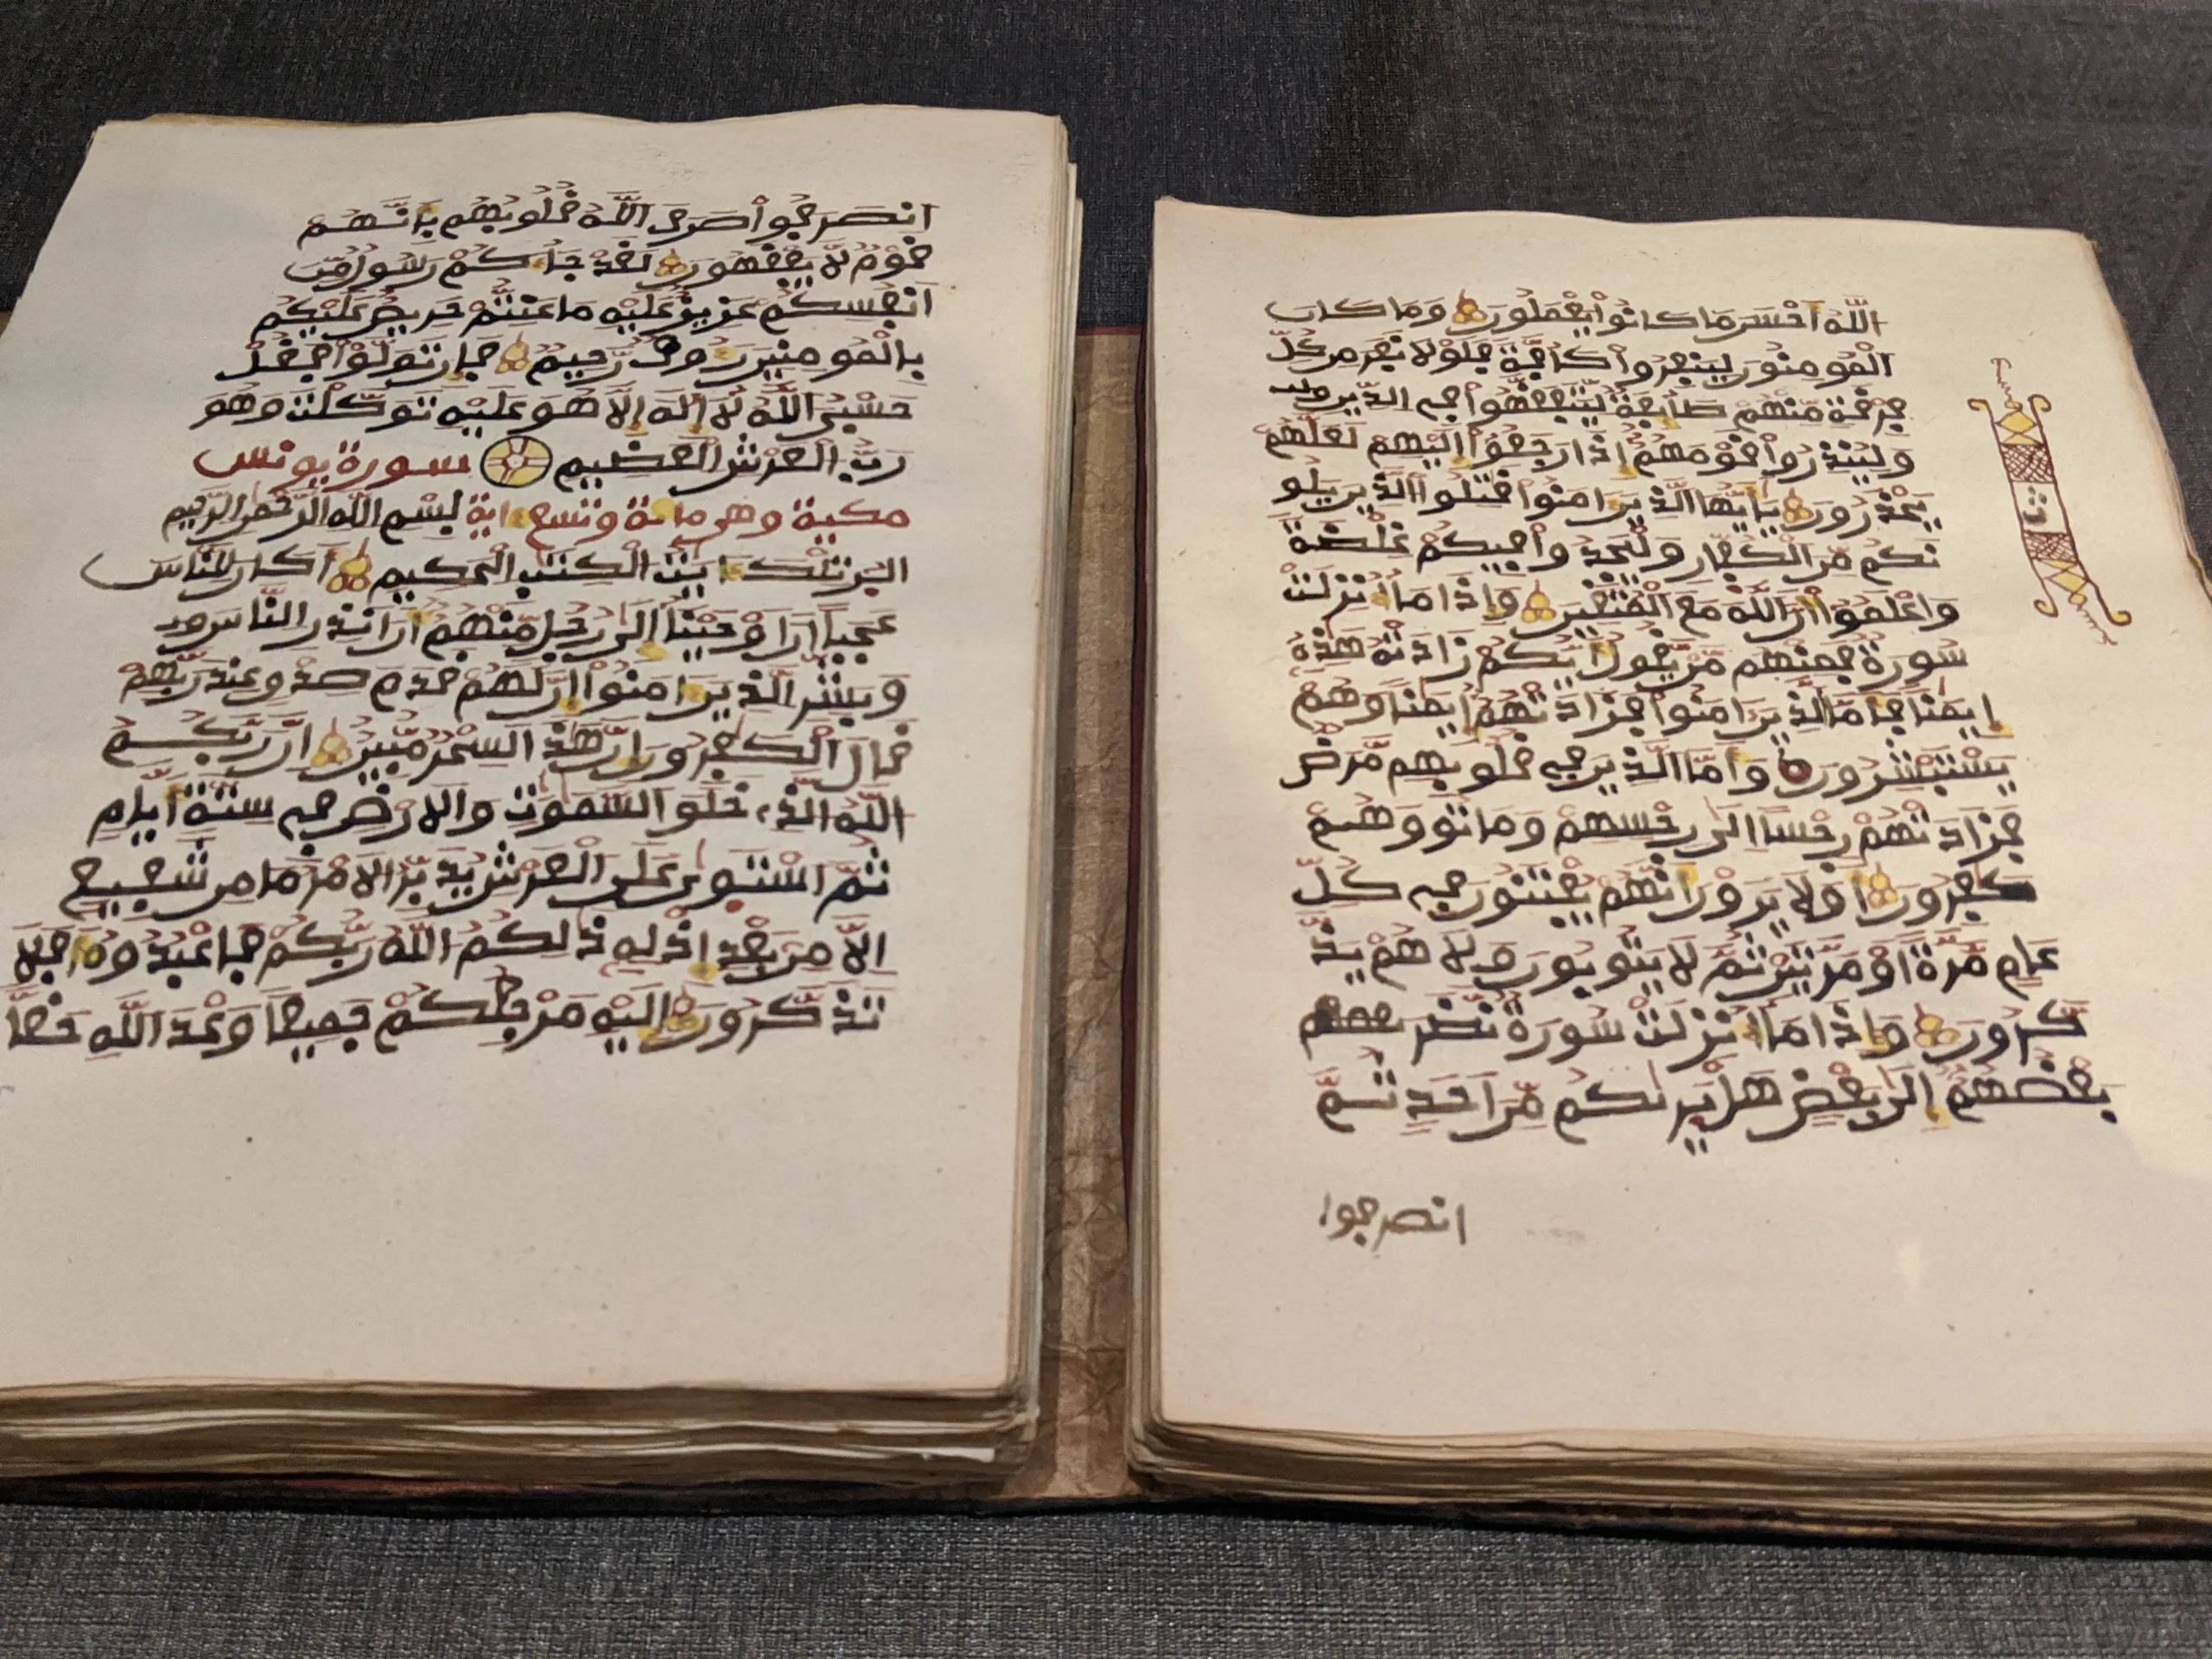 اللّه أحْسَر مَا كَانُوا يَعْمَلُورَ وَمَا كَارَ
الْمُومِنُورَ لِيَنفِرُوا كَافَّةً فَلَوْلَا نَفَرَ مِر كُلِّ
فِرْقَةٍ مِّنْهُمْ طَآئِفَةٌ لِّيَتَفَقَّهُوا فِي الدِّيرِ
وَلِيُنذِرُوا قَوْمَهُمْ إِذَا رَجَعُوا إِلَيْهِمْ لَعَلَّهُمْ
يَحْذَرُورَ يَأَيُّهَا الَّذِيرَ ءَامَنُوا قَتِلُوا الَّذِيرَ يَلُو
نَكُم مِّرَ الْكُفَّارِ وَلْيَجِدُوا فِيكُمْ غِلْظَةً
وَاعْلَمُوا أَرَّ اللَّهَ مَعَ الْمُتَّقِيرَ وَإِذَا مَا أُنزِلَتْ
سُورَةٌ فَمِنْهُم مَّر يَقُولُ أَيُّكُمْ زَادَتْهُ هَذِهِ
إِيمَنًا فَأَمَّا الَّذِيرَ ءَامَنُوا فَزَادَتْهُمْ إِيمَنًا وَهُمْ
يَسْتَبْشِرُورَ وَأَمَّا الَّذِيرَ فِي قُلُوبِهِم مَّرَضٌ
فَزَادَتْهُمْ رِجْسًا إِلَى رِجْسِهِمْ وَمَاتُوا وَهُمْ
كَفِرُورَ أَوَلَا يَرَوْرَ أَنَّهُمْ يُفْتَنُورَ فِي كُلِّ
عَامٍ مَّرَّةً أَوْ مَرَّتَيْرِ ثُمَّ لَا يَتُوبُورَ وَلَا هُمْ يَذَّ
كَّرُورَ وَإِذَا مَا أُنزِلَتْ سُورَةٌ نَّظَرَ
بَعْضُهُمْ إِلَى بَعْضٍ هَلْ يَرَىكُم مِّرْ أَحَدٍ ثُمَّ
انصرفوا
ث
انصَرَفُوا صَرَفَ اللَّهُ قُلُوبَهُم بِأَنَّهُمْ
قَوْمٌ لَّا يَفْقَهُورَ لَقَدْ جَآءَكُمْ رَسُولٌ مِّرْ
أَنفُسِكُمْ عَزِيزٌ عَلَيْهِ مَا عَنِتُّمْ حَرِيصٌ عَلَيْكُم
بِالْمُومِنِيرَ رَءُوفٌ رَّحِيمٌ فَإِر تَوَلَّوْا فَقُلْ
حَسْبِيَ اللَّهُ لَا إِلَهَ إِلَّا هُوَ عَلَيْهِ تَوَكَّلْتُ وَهُوَ
رَبُّ الْعَرْشِ الْعَظِيمِ سورة يونس
مكية وهي مائة وتسع ءاية بِسْمِ اللَّهِ الرَّحْمَرِ الرَّحِيمِ
الَر تِلْكَ ءَايَتُ الْكِتَبِ الْحَكِيمِ أَكَارَ لِلنَّاسِ
عَجَبًا أَرَ أَوْحَيْنَا إِلَى رَجُلٍ مِّنْهُمْ أَرَ أَنذِرِ النَّاسَ
وَبَشِّرِ الَّذِيرَ ءَامَنُوا أَرَّ لَهُمْ قَدَمَ صِدْوٍ عِندَ رَبِّهِمْ
قَالَ الْكَفِرُورَ إِرَّ هَذَا لَسِحْرٌ مُّبِيرٌ إِرَّ رَبَّكُمُ
اللَّهُ الَّذِي خَلَوَ السَّمَوَتِ وَالْأَرْضَ فِي سِتَّةِ أَيَّامٍ
ثُمَّ اسْتَوَى عَلَى الْعَرْشِ يُدَبِّرُ الْأَمْرَ مَا مِر شَفِيعٍ
إِلَّا مِر بَعْدِ إِذْنِهِ ذَلِكُمُ اللَّهُ رَبُّكُمْ فَاعْبُدُوهُ أَفَلَا
تَذَّكَّرُورَ إِلَيْهِ مَرْجِعُكُمْ جَمِيعًا وَعْدَ اللَّهِ حَقًّا